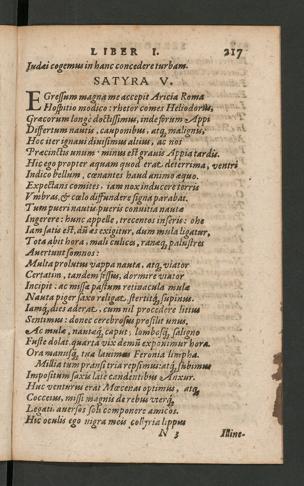 LIBER I. 217
Iudæi cogemus in hanc concedere turbam.
SATYRA V.
EGressum magna me accepit Aricia Roma
Hospitio modico: rhetor comes Heliodorus,
Græcorum longè doctissimus, inde forum Appi
Differtum nautis, cauponibus, atq; malignis,
Hoc iter ignaui diuisimus altius, ac nos
Præcinctis unum: minus est grauis Appia tardis.
Hic ego propter aquam quod erat deterrima, ventri
Indico bellum, cœnantes haud animo æquo.
Expectans comites. iam nox inducere terris
Vmbras, & cœlo diffundere signa parabat.
Tum pueri nautis pueris conuitia nautæ
Ingerere: hunc appelle, trecentos inseris: ohe
Iam satis est, dũ æs exigitur, dum mula ligatur,
Tota abit hora, mali culices, ranæq; palustres
Auertunt somnos:
Multa prolutus vappa nauta, atq; viator
Certatim, tandem fessus, dormire viator
Incipit: ac missæ pastum retinacula mulæ
Nauta piger saxo religat, stertitq; supinus.
Iamq; dies aderat, cum nil procedere lintrem
Sentimus: donec cerebrosus prosilit unus,
Ac mulæ, nautæq; caput, lumbosq; saligno
Fuste dolat. quarta vix demũ exponimur hora.
Ora manusq; tua lauimus Feronia limpha.
Millia tum pransi tria repsimus: atq; subimus
Impositum saxis late candentibus Anxur.
Huc venturus erat Mœcenas optimus, atq;
Cocceius, missi magnis de rebus vterq;
Legati. auersos soli componere amicos.
Hic oculis ego nigra meis collyria lippus
N 3 Illine-